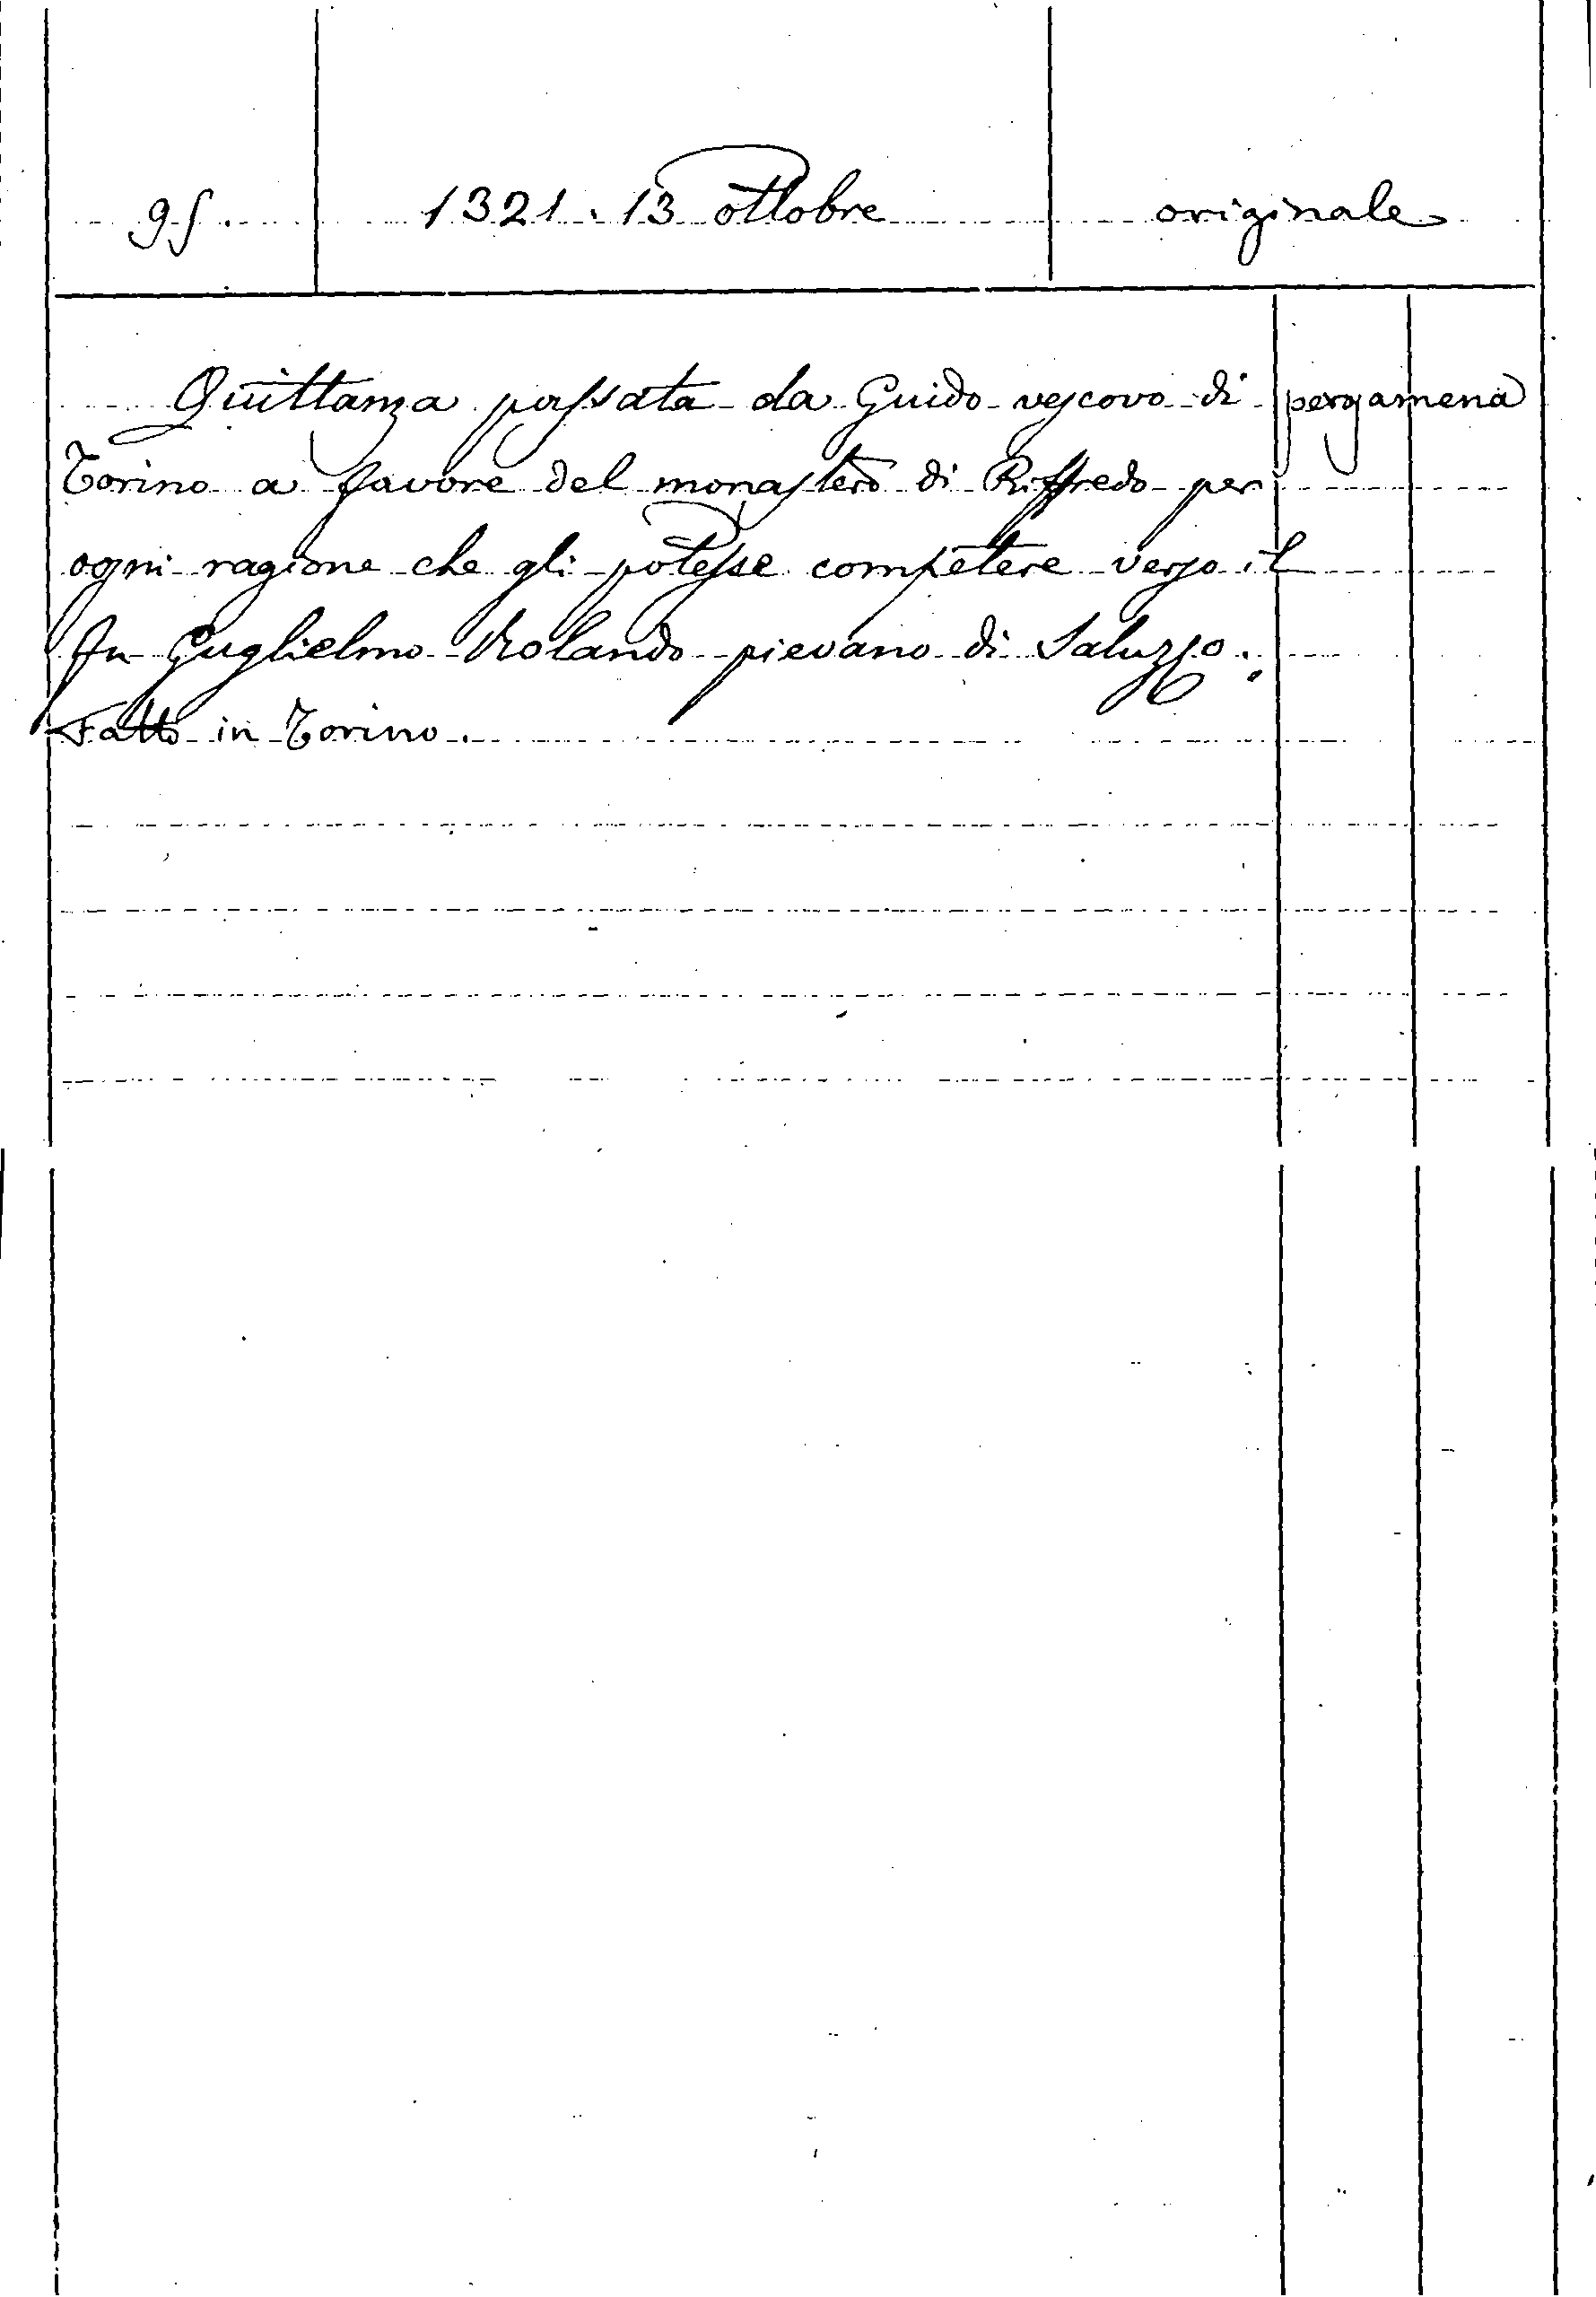 95. 1321. 13 ottobre originale
Quittanza passata da Guido vescovo di pergamena
Torino a favore del monastero di Riffredo per
ogni ragione che gli potesse competere verso il
fu Guglielmo Rolando pievano di Saluzzo.
Fatto in Torino.